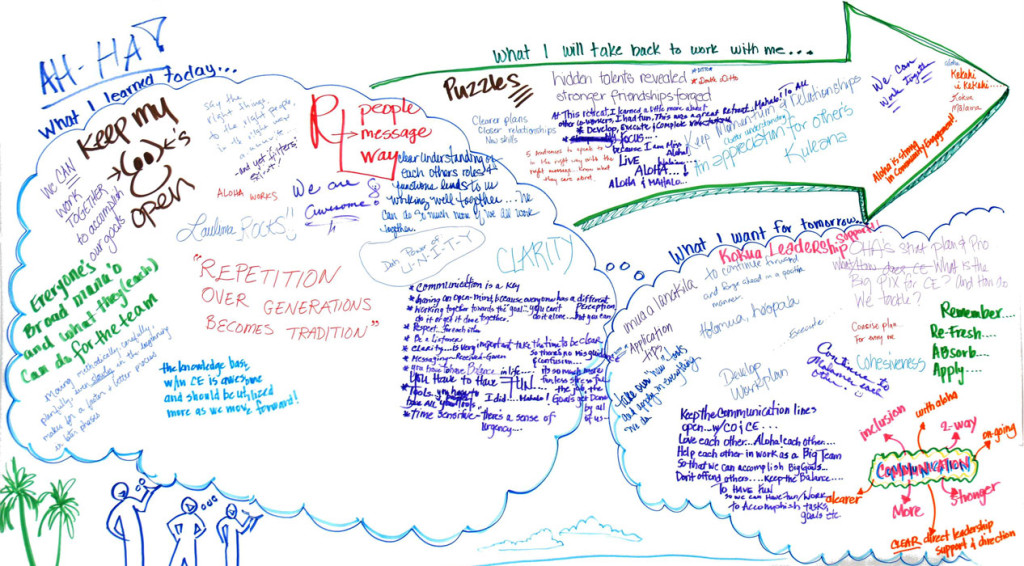 AH-HA!
What I learned today...
Keep my
eye's
open
WE CAN
WORK
TOGETHER
to accomplish
our goals
say the
right things
to the right people,
R
people
message
way
clear understanding of
each others roles &
functions leads to us
working well together...
Can do so much more if we all work
together.
ALOHA WORKS
We are
awesome!
Laulima ROCKS!!
Data Power of
U-N-I-T-Y
CLARITY
"REPETITION
OVER GENERATIONS
BECOMES TRADITION"
Everyone's
Broad mana'o
and what they (each)
can do for the team
Moving methodically, carefully,
painfully, even slowly in the beginning
makes for a faster, better process
in later phases
the knowledge base
w/in CE is awesome
and should be utilized
more as we move forward!
* Communication is a key
* Having an open-mind, because everyone has a different
perception
* Working together towards the goal... you can't
do it or get it done together.
do it alone... but you can
* Respect for each other
* Be a Listener
* Clarity... is very important take the time to be clear
so there's no misguided
confusion...
* Messaging-Received-Given
* You have to have Balance in life...
You Have to Have FUN
it's so much more
fun, less stressful
I did... Mahalo!
Goals get Done
by all
of us
* Tools you have to
take All your tools
* Time Sensitive-there's a sense of
urgency...
What I will take back to work with me...
Puzzles
Clearer plans
Closer relationships
New skills
hidden talents revealed
stronger friendships forged
* DITTO
* Death Ditto
* At This retreat, I learned a little more about
other co-workers, I had fun, This was a great Retreat..Mahalo! To All
* Develop, Execute & Complete
FOCUS...
because I am Also
Aloha!
LIVE
ALOHA...!
ALOHA & MAHALO...
Keep Mahun-Hun Relationships
clearer understanding
An appreciation for others
Kuleana
We Can
Work Together
Kakahi
i Kakahi...
Kokua
Malama
Aloha is strong
in Community Engagement!
What I want for tomorrow...
Kokua Leadership
Support!
to continue forward
and forge ahead in a positive
manner.
imua lanakila
Application
Holomua, hoopola
Execute...
Develop
Workplan
take our new tools
and apply in everything
we do
OHA's strat plan & Pno
What/How does CE What is the
Big Pix for CE? and How do
We tackle?
Concise plan...
For every one
Cohesiveness
Continue to
Malama each
other...
Remember...
Re-Fresh...
ABsorb...
Apply....
Keep the communication lines
open...w/CO & CE...
Love each other...Aloha! each other...
Help each other in work as a Big Team
so that we can accomplish Big Goals...
Don't offend others....Keep the Balance....
TO HAVE FUN
so we can Have Fun/Work
to Accomplish tasks,
goals etc.
inclusion
with aloha
2-way
on-going
COMMUNICATION
clearer
More
stronger
CLEAR direct leadership
support & direction